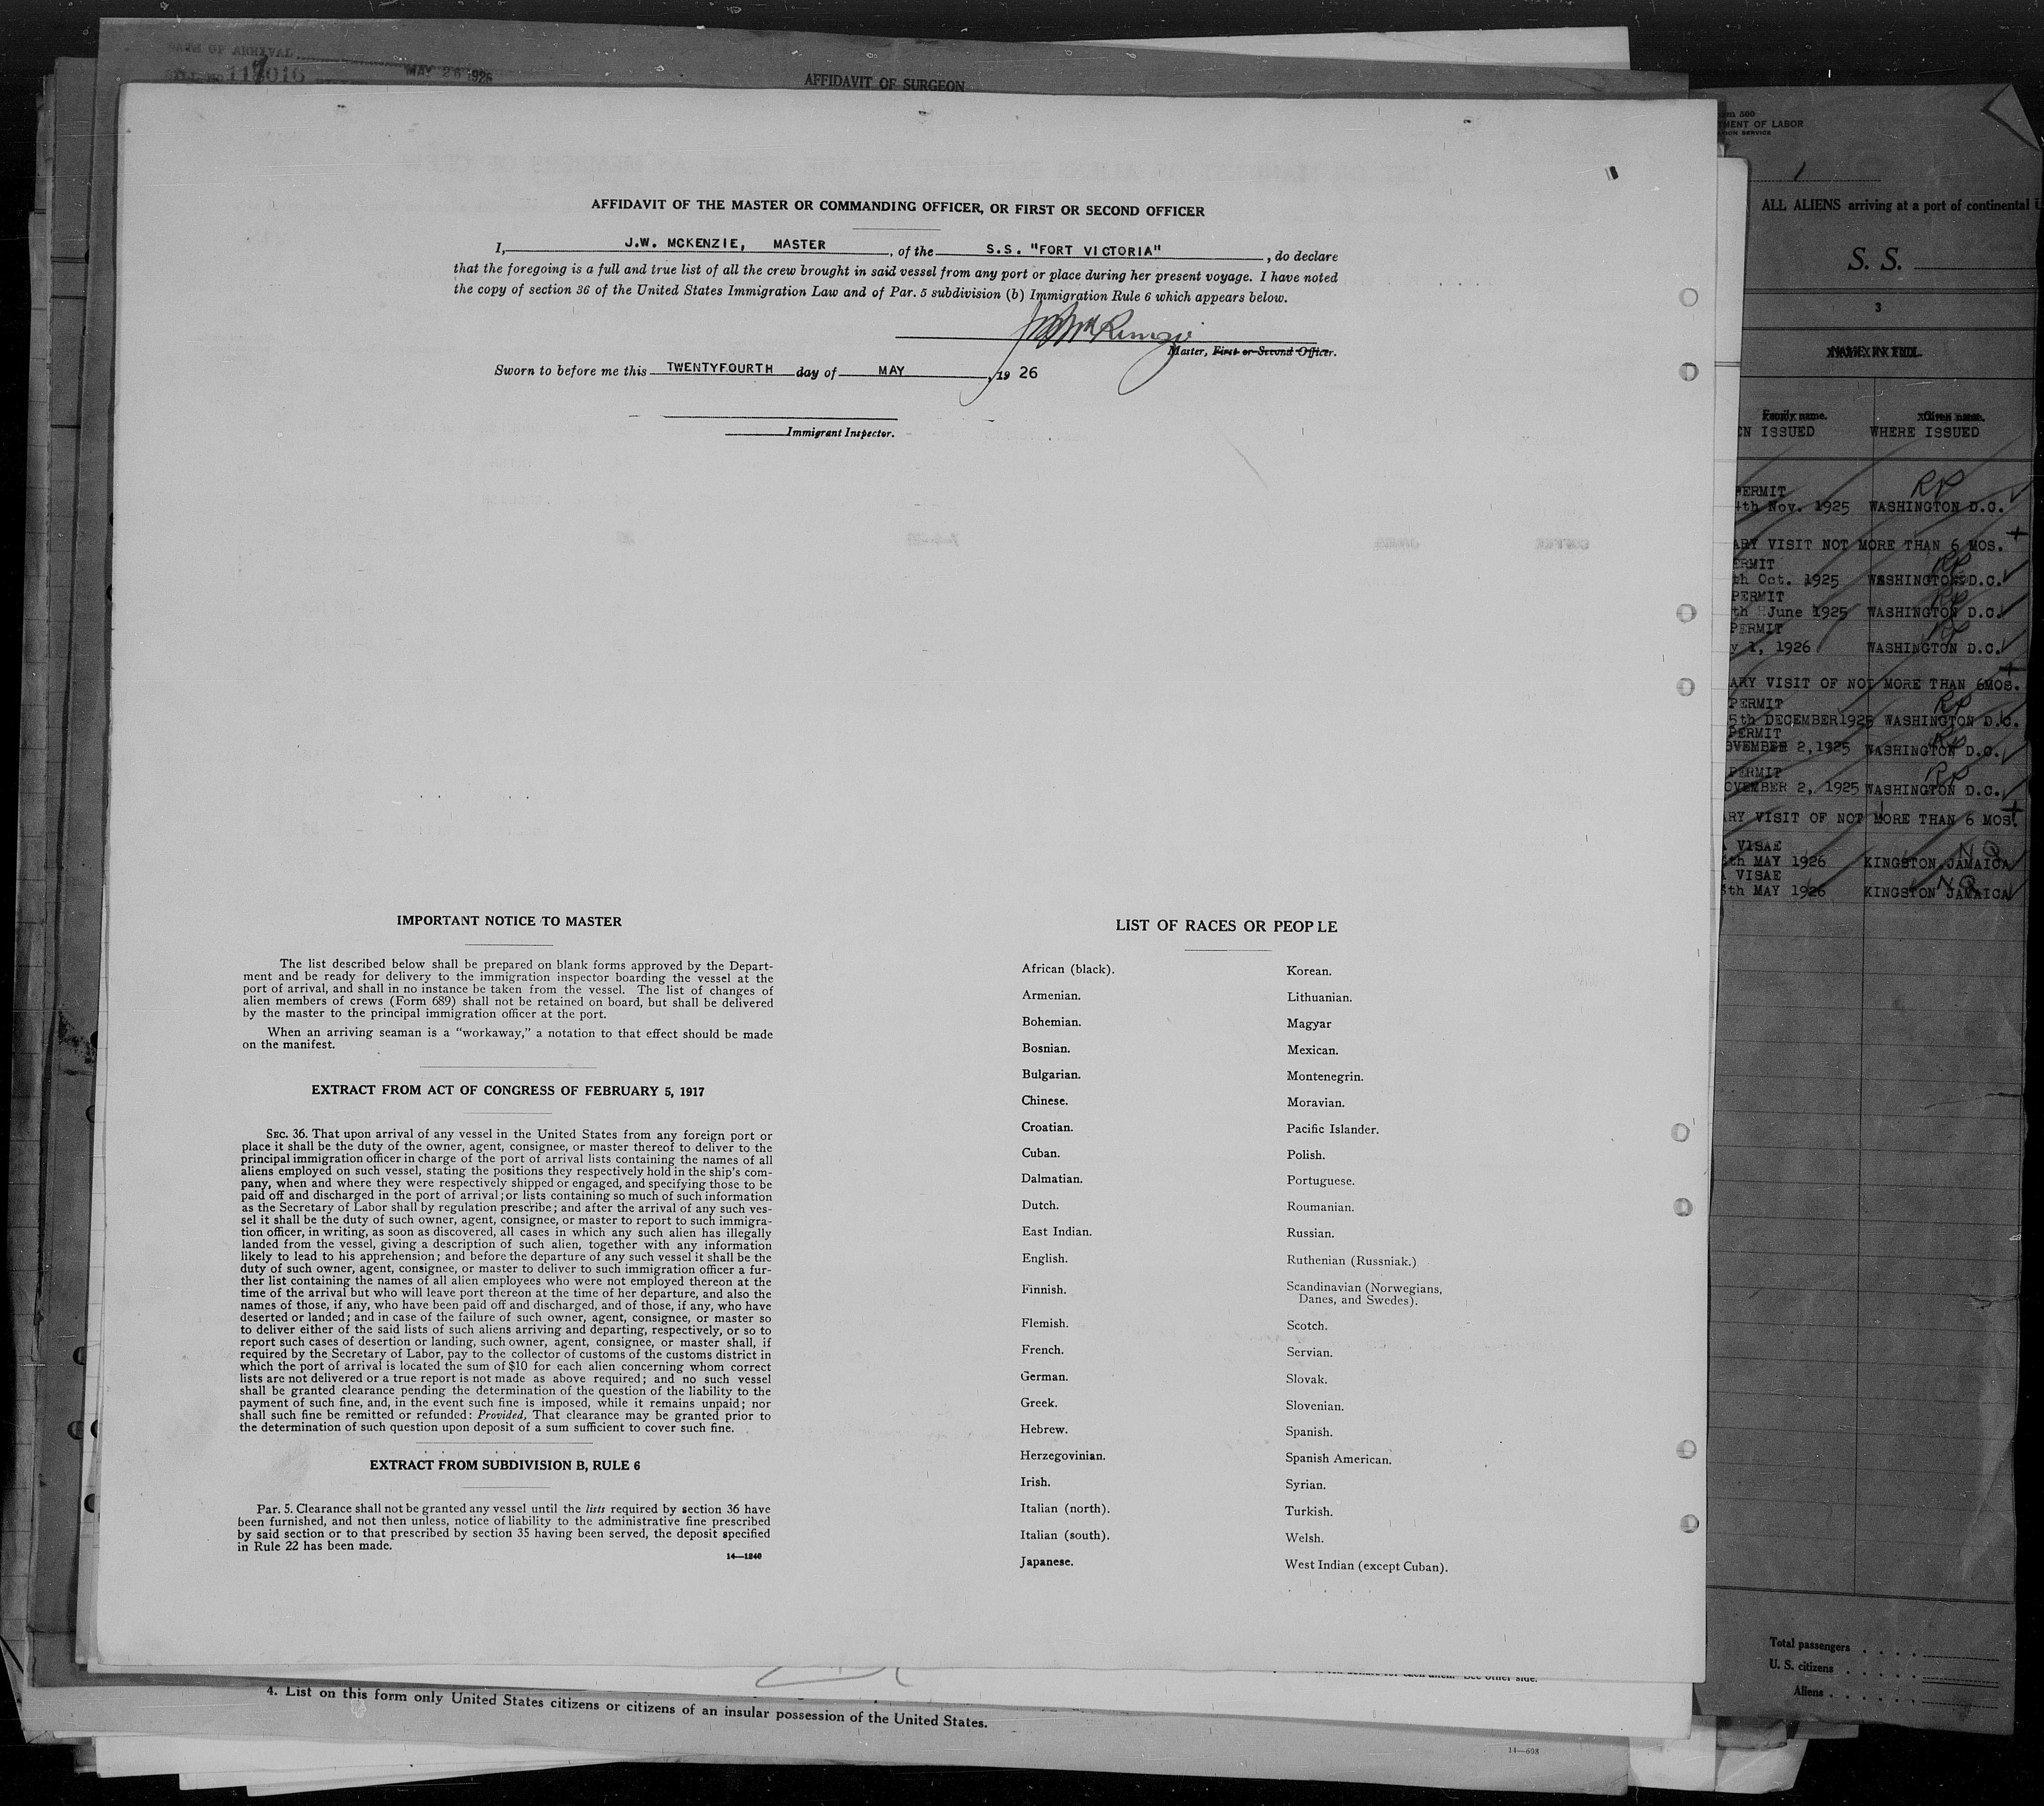 DATE OF ARRIVAL
MAY 26 1926
AFFIDAVIT OF SURGEON
AFFIDAVIT OF THE MASTER OR COMMANDING OFFICER, OR FIRST OR SECOND OFFICER
I, J.W. MCKENZIE, MASTER, of the S.S. "FORT VICTORIA", do declare
that the foregoing is a full and true list of all the crew brought in said vessel from any port or place during her present voyage. I have noted
the copy of section 36 of the United States Immigration Law and of Par. 5 subdivision (b) Immigration Rule 6 which appears below.
Master, First or Second Officer.
Sworn to before me this TWENTYFOURTH day of MAY, 19 26
Immigrant Inspector.
IMPORTANT NOTICE TO MASTER
The list described below shall be prepared on blank forms approved by the Depart-
ment and be ready for delivery to the immigration inspector boarding the vessel at the
port of arrival, and shall in no instance be taken from the vessel. The list of changes of
alien members of crews (Form 689) shall not be retained on board, but shall be delivered
by the master to the principal immigration officer at the port.
When an arriving seaman is a "workaway," a notation to that effect should be made
on the manifest.
EXTRACT FROM ACT OF CONGRESS OF FEBRUARY 5, 1917
SEC. 36. That upon arrival of any vessel in the United States from any foreign port or
place it shall be the duty of the owner, agent, consignee, or master thereof to deliver to the
principal immigration officer in charge of the port of arrival lists containing the names of all
aliens employed on such vessel, stating the positions they respectively hold in the ship's com-
pany, when and where they were respectively shipped or engaged, and specifying those to be
paid off and discharged in the port of arrival; or lists containing so much of such information
as the Secretary of Labor shall by regulation prescribe; and after the arrival of any such ves-
sel it shall be the duty of such owner, agent, consignee, or master to report to such immigra-
tion officer, in writing, as soon as discovered, all cases in which any such alien has illegally
landed from the vessel, giving a description of such alien, together with any information
likely to lead to his apprehension; and before the departure of any such vessel it shall be the
duty of such owner, agent, consignee, or master to deliver to such immigration officer a fur-
ther list containing the names of all alien employees who were not employed thereon at the
time of the arrival but who will leave port thereon at the time of her departure, and also the
names of those, if any, who have been paid off and discharged, and of those, if any, who have
deserted or landed; and in case of the failure of such owner, agent, consignee, or master so
to deliver either of the said lists of such aliens arriving and departing, respectively, or so to
report such cases of desertion or landing, such owner, agent, consignee, or master shall, if
required by the Secretary of Labor, pay to the collector of customs of the customs district in
which the port of arrival is located the sum of $10 for each alien concerning whom correct
lists are not delivered or a true report is not made as above required; and no such vessel
shall be granted clearance pending the determination of the question of the liability to the
payment of such fine, and, in the event such fine is imposed, while it remains unpaid; nor
shall such fine be remitted or refunded: Provided, That clearance may be granted prior to
the determination of such question upon deposit of a sum sufficient to cover such fine.
EXTRACT FROM SUBDIVISION B, RULE 6
Par. 5. Clearance shall not be granted any vessel until the lists required by section 36 have
been furnished, and not then unless, notice of liability to the administrative fine prescribed
by said section or to that prescribed by section 35 having been served, the deposit specified
in Rule 22 has been made.
14—1240
LIST OF RACES OR PEOPLE
African (black).
Armenian.
Bohemian.
Bosnian.
Bulgarian.
Chinese.
Croatian.
Cuban.
Dalmatian.
Dutch.
East Indian.
English.
Finnish.
Flemish.
French.
German.
Greek.
Hebrew.
Herzegovinian.
Irish.
Italian (north).
Italian (south).
Japanese.
Korean.
Lithuanian.
Magyar
Mexican.
Montenegrin.
Moravian.
Pacific Islander.
Polish.
Portuguese.
Roumanian.
Russian.
Ruthenian (Russniak.)
Scandinavian (Norwegians,
Danes, and Swedes).
Scotch.
Servian.
Slovak.
Slovenian.
Spanish.
Spanish American.
Syrian.
Turkish.
Welsh.
West Indian (except Cuban).
See other side.
4. List on this form only United States citizens or citizens of an insular possession of the United States.
14—608
500
MENT OF LABOR
ION SERVICE
ALL ALIENS arriving at a port of continental
S. S.
3
NAME IN FULL
Family name. Given name.
ISSUED WHERE ISSUED
PERMIT RP
4th Nov. 1925 WASHINGTON D.C.
ARY VISIT NOT MORE THAN 6 MOS.
ERMIT RP
th Oct. 1925 WASHINGTON D.C.
PERMIT RP
th June 1925 WASHINGTON D.C.
PERMIT RP
y 1, 1926 WASHINGTON D.C.
ARY VISIT OF NOT MORE THAN 6MOS.
PERMIT RP
5th DECEMBER1925 WASHINGTON D.C.
PERMIT RP
OVEMBER 2,1925 WASHINGTON D.C.
PERMIT RP
OVEMBER 2, 1925 WASHINGTON D.C.
RY VISIT OF NOT MORE THAN 6 MOS.
VISAE NQ
th MAY 1926 KINGSTON JAMAICA
VISAE NQ
th MAY 1926 KINGSTON JAMAICA
Total passengers
U. S. citizens
Aliens